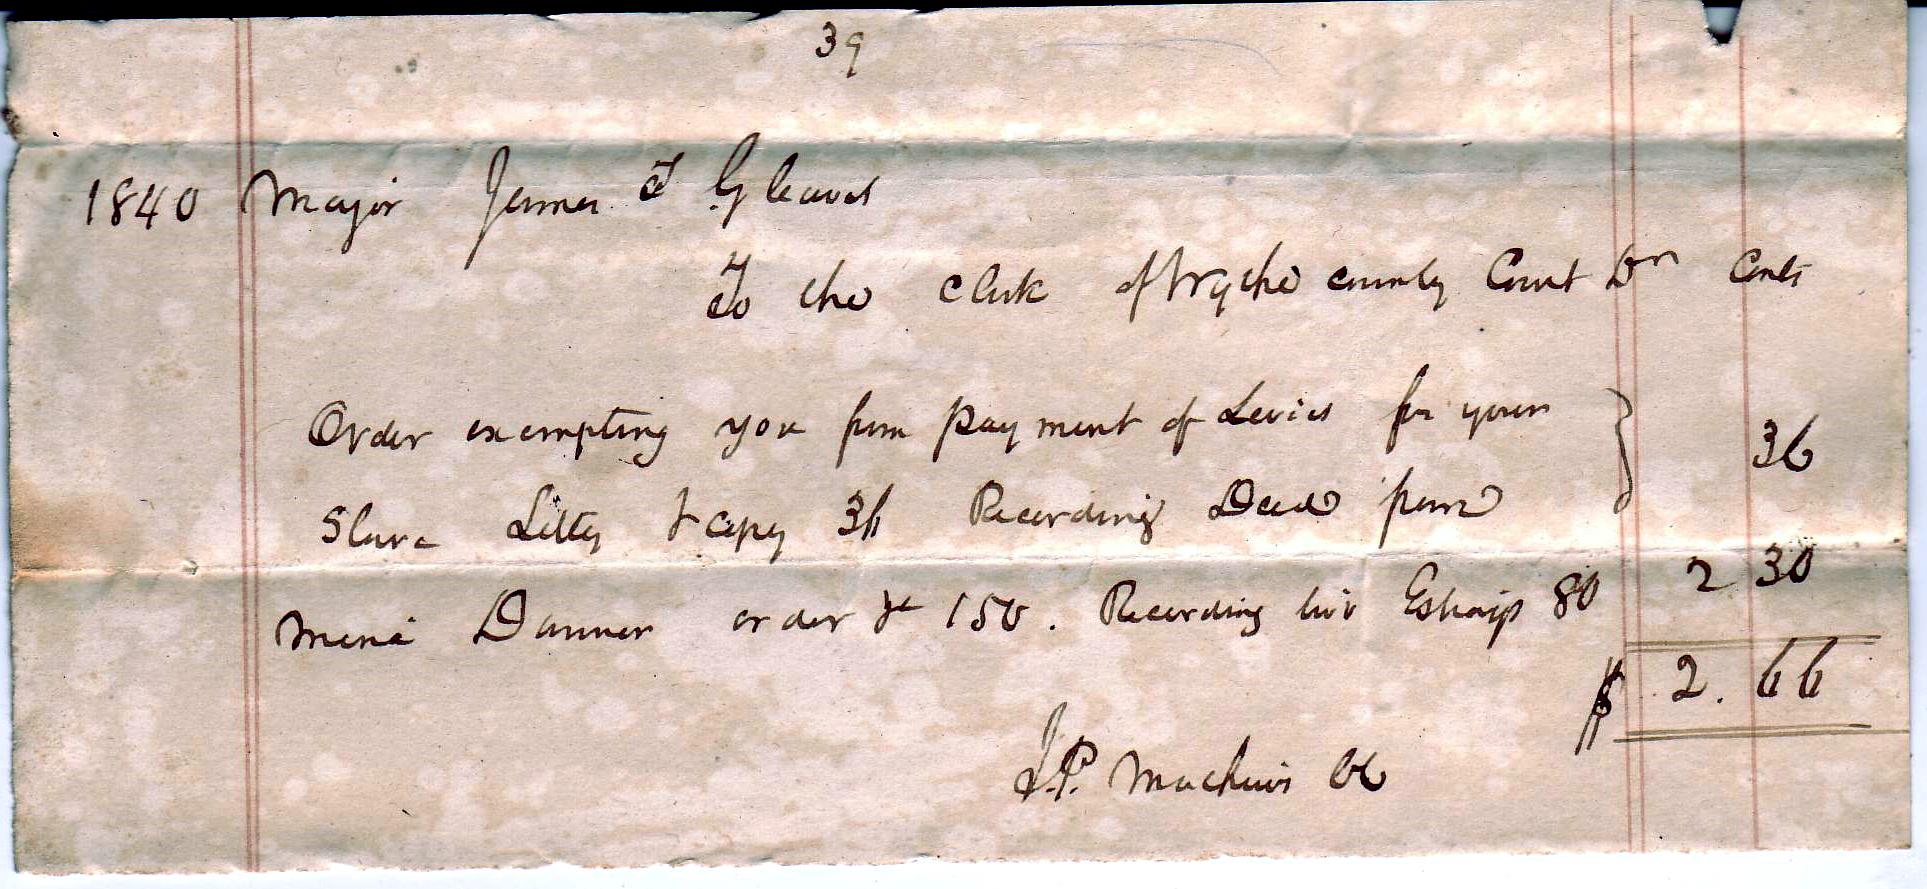 39
1840 Major James T Gleaves
To the Clerk of Wythe county Court Dr Cents
Order exempting you from payment of Levies for your
Slave Letty & copy 36 Recording Deed from } 36
Danner order &c 150. Recording 80 2 30
$ 2.66
J.P. Mathews CC